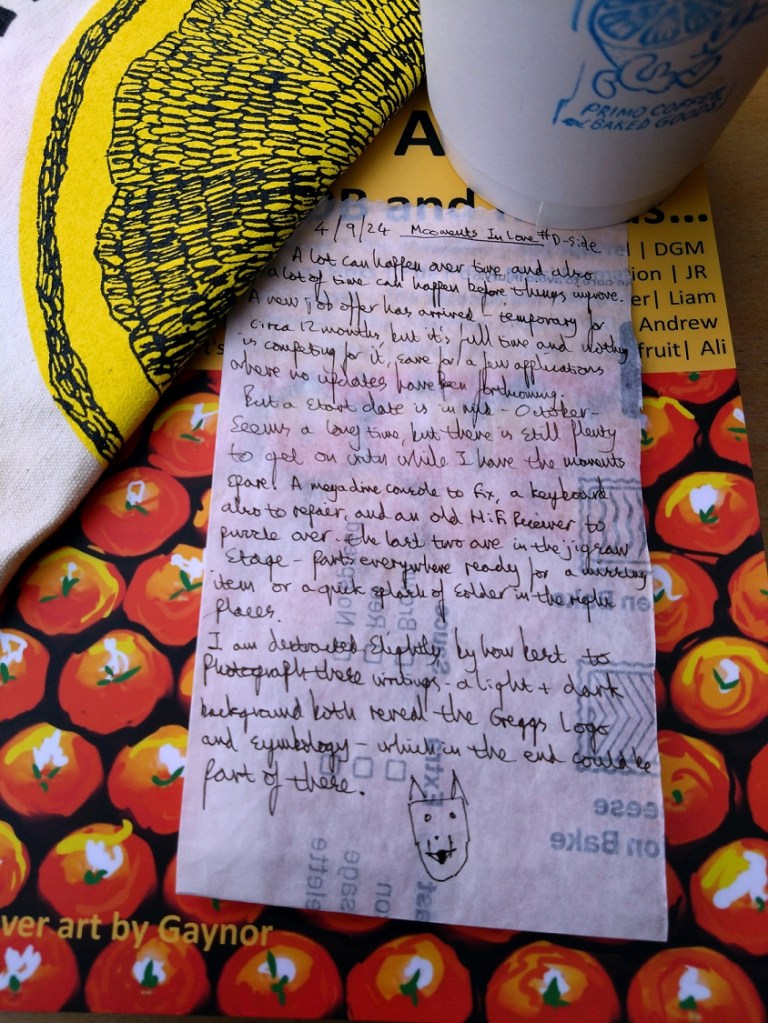 PRIMO COFFEE
& BAKED GOODS
A
and
s...
4/9/24 Mcoments In Love #D-Side
DGM
ion | JR
er | Liam
Andrew
fruit | Ali
A lot can happen over time and also
a lot of time can happen before things improve.
A new job offer has arrived - temporary for
circa 12 months, but it's full time and nothing
is competing for it, save for a few applications
where no updates have been forthcoming.
But a start date is in - October -
seems a long time, but there is still plenty
to get on with while I have the moments
spare. A megadrive console to fix, a keyboard
also to repair, and an old HiFi Receiver to
puzzle over - the last two are in the jigsaw
stage - parts everywhere ready for a missing
item or a quick splash of solder in the right
places.
I am distracted slightly by how best to
photograph these writings - a light + dark
background both reveal the Greggs Logo
and symbology - which in the end could be
part of these.
en Bake
eese
on Bake
elette
sage
on
ast
Extra
sauce
No
Re
Bro
ver art by Gaynor